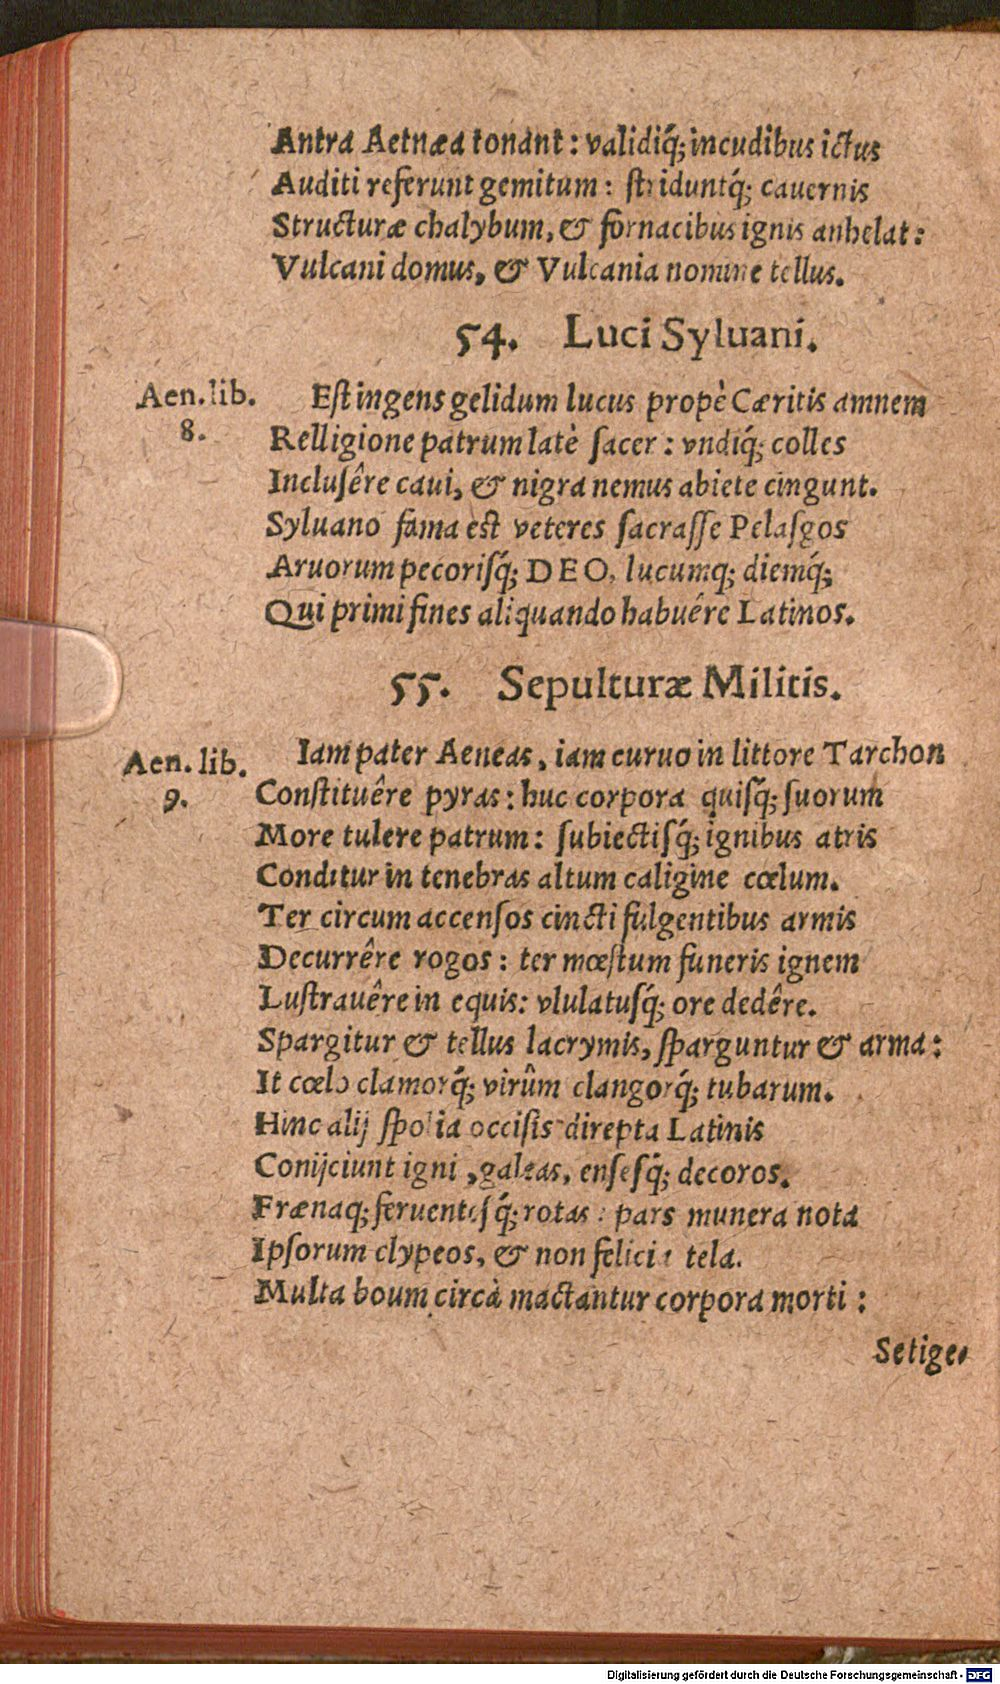 Antra Aetnæa tonant: validiq́; incudibus ictus
Auditi referunt gemitum: striduntq́; cauernis
Structuræ chalybum, & fornacibus ignis anhelat:
Vulcani domus, & Vulcania nomine tellus.
54. Luci Syluani.
Aen. lib. 8.
Est ingens gelidum lucus propè Cæritis amnem
Relligione patrum latè sacer: vndiq́; colles
Inclusêre caui, & nigra nemus abiete cingunt.
Syluano fama est veteres sacrasse Pelasgos
Aruorum pecorisq́; DEO, lucumq; diemq́;
Qui primi fines aliquando habuêre Latinos.
55. Sepulturæ Militis.
Aen. lib. 9.
Iam pater Aeneas, iam curuo in littore Tarchon
Constituêre pyras: huc corpora quisq́; suorum
More tulere patrum: subiectisq́; ignibus atris
Conditur in tenebras altum caligine cœlum.
Ter circum accensos cincti fulgentibus armis
Decurrêre rogos: ter mœstum funeris ignem
Lustrauêre in equis: vlulatusq́; ore dedêre.
Spargitur & tellus lacrymis, sparguntur & arma:
It cœlo clamorq́; virûm clangorq́; tubarum.
Hinc alij spolia occisis direpta Latinis
Conijciunt igni, galeas, ensesq́; decoros.
Frænaq; feruentesq́; rotas: pars munera nota
Ipsorum clypeos, & non felicia tela.
Multa boum circà mactantur corpora morti:
Setige-
Digitalisierung gefördert durch die Deutsche Forschungsgemeinschaft - DFG